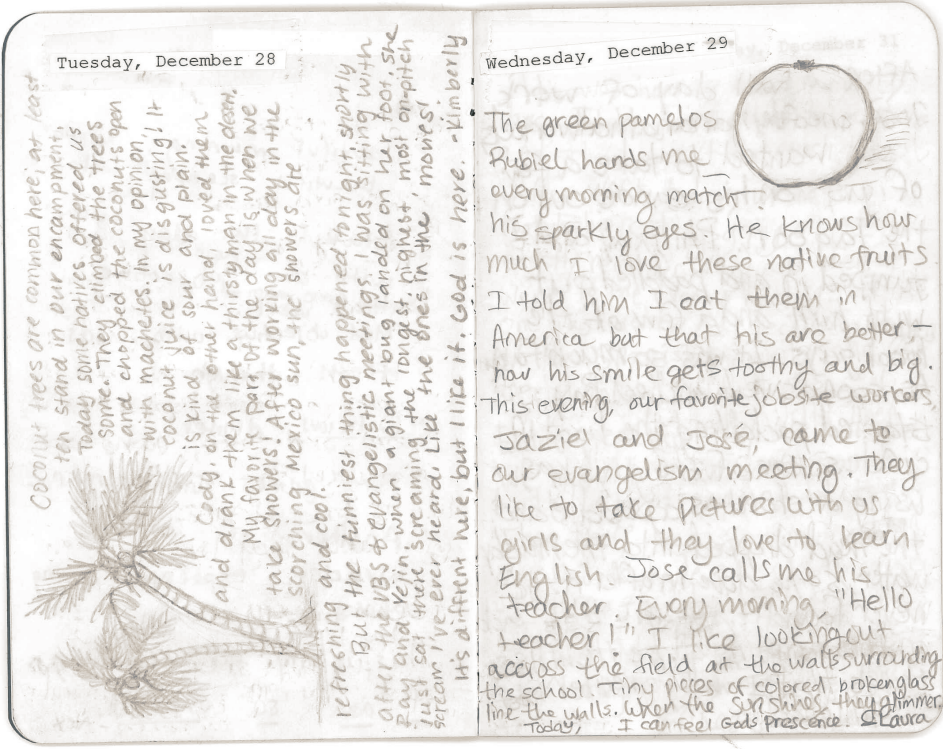 Tuesday, December 28
Coconut trees are common here, at least
ten stand in our encampment.
Today some natives offered us
some. They climbed the trees
and chopped the coconuts open
with machetes. In my opinion,
coconut juice is disgusting! It
is kind of sour and plain.
Cody, on the other hand, loved them
and drank them like a thirsty man in the desert.
My favorite part of the day is when we
take showers! After working all day in the
scorching Mexico sun, the showers are
refreshing and cool.
But the funniest thing happened tonight shortly
after the VBS & evangelistic meetings. I was sitting with
Ray and when a giant bug landed on her foot, she
just sat there screaming the longest, highest, most on-pitch
scream I've ever heard. Like the ones in the movies!
It's diffrent here, but I like it. God is here. -Kimberly
Wednesday, December 29
The green pamelos
Rubiel hands me
every morning match
his sparkly eyes. He knows how
much I love these native fruits
I told him I eat them in
America but that his are better—
now his smile gets toothy and big.
This evening, our favorite jobsite workers,
Jaziel and José, came to
our evangelism meeting. They
like to take pictures with us
girls and they love to learn
English. Jose calls me his
teacher. Every morning, "Hello
teacher!" I like looking out
accross the field at the walls surrounding
the school. Tiny pieces of colored broken glass
line the walls. When the sun shines, they glimmer.
Today, I can feel Gods Prescence. Laura